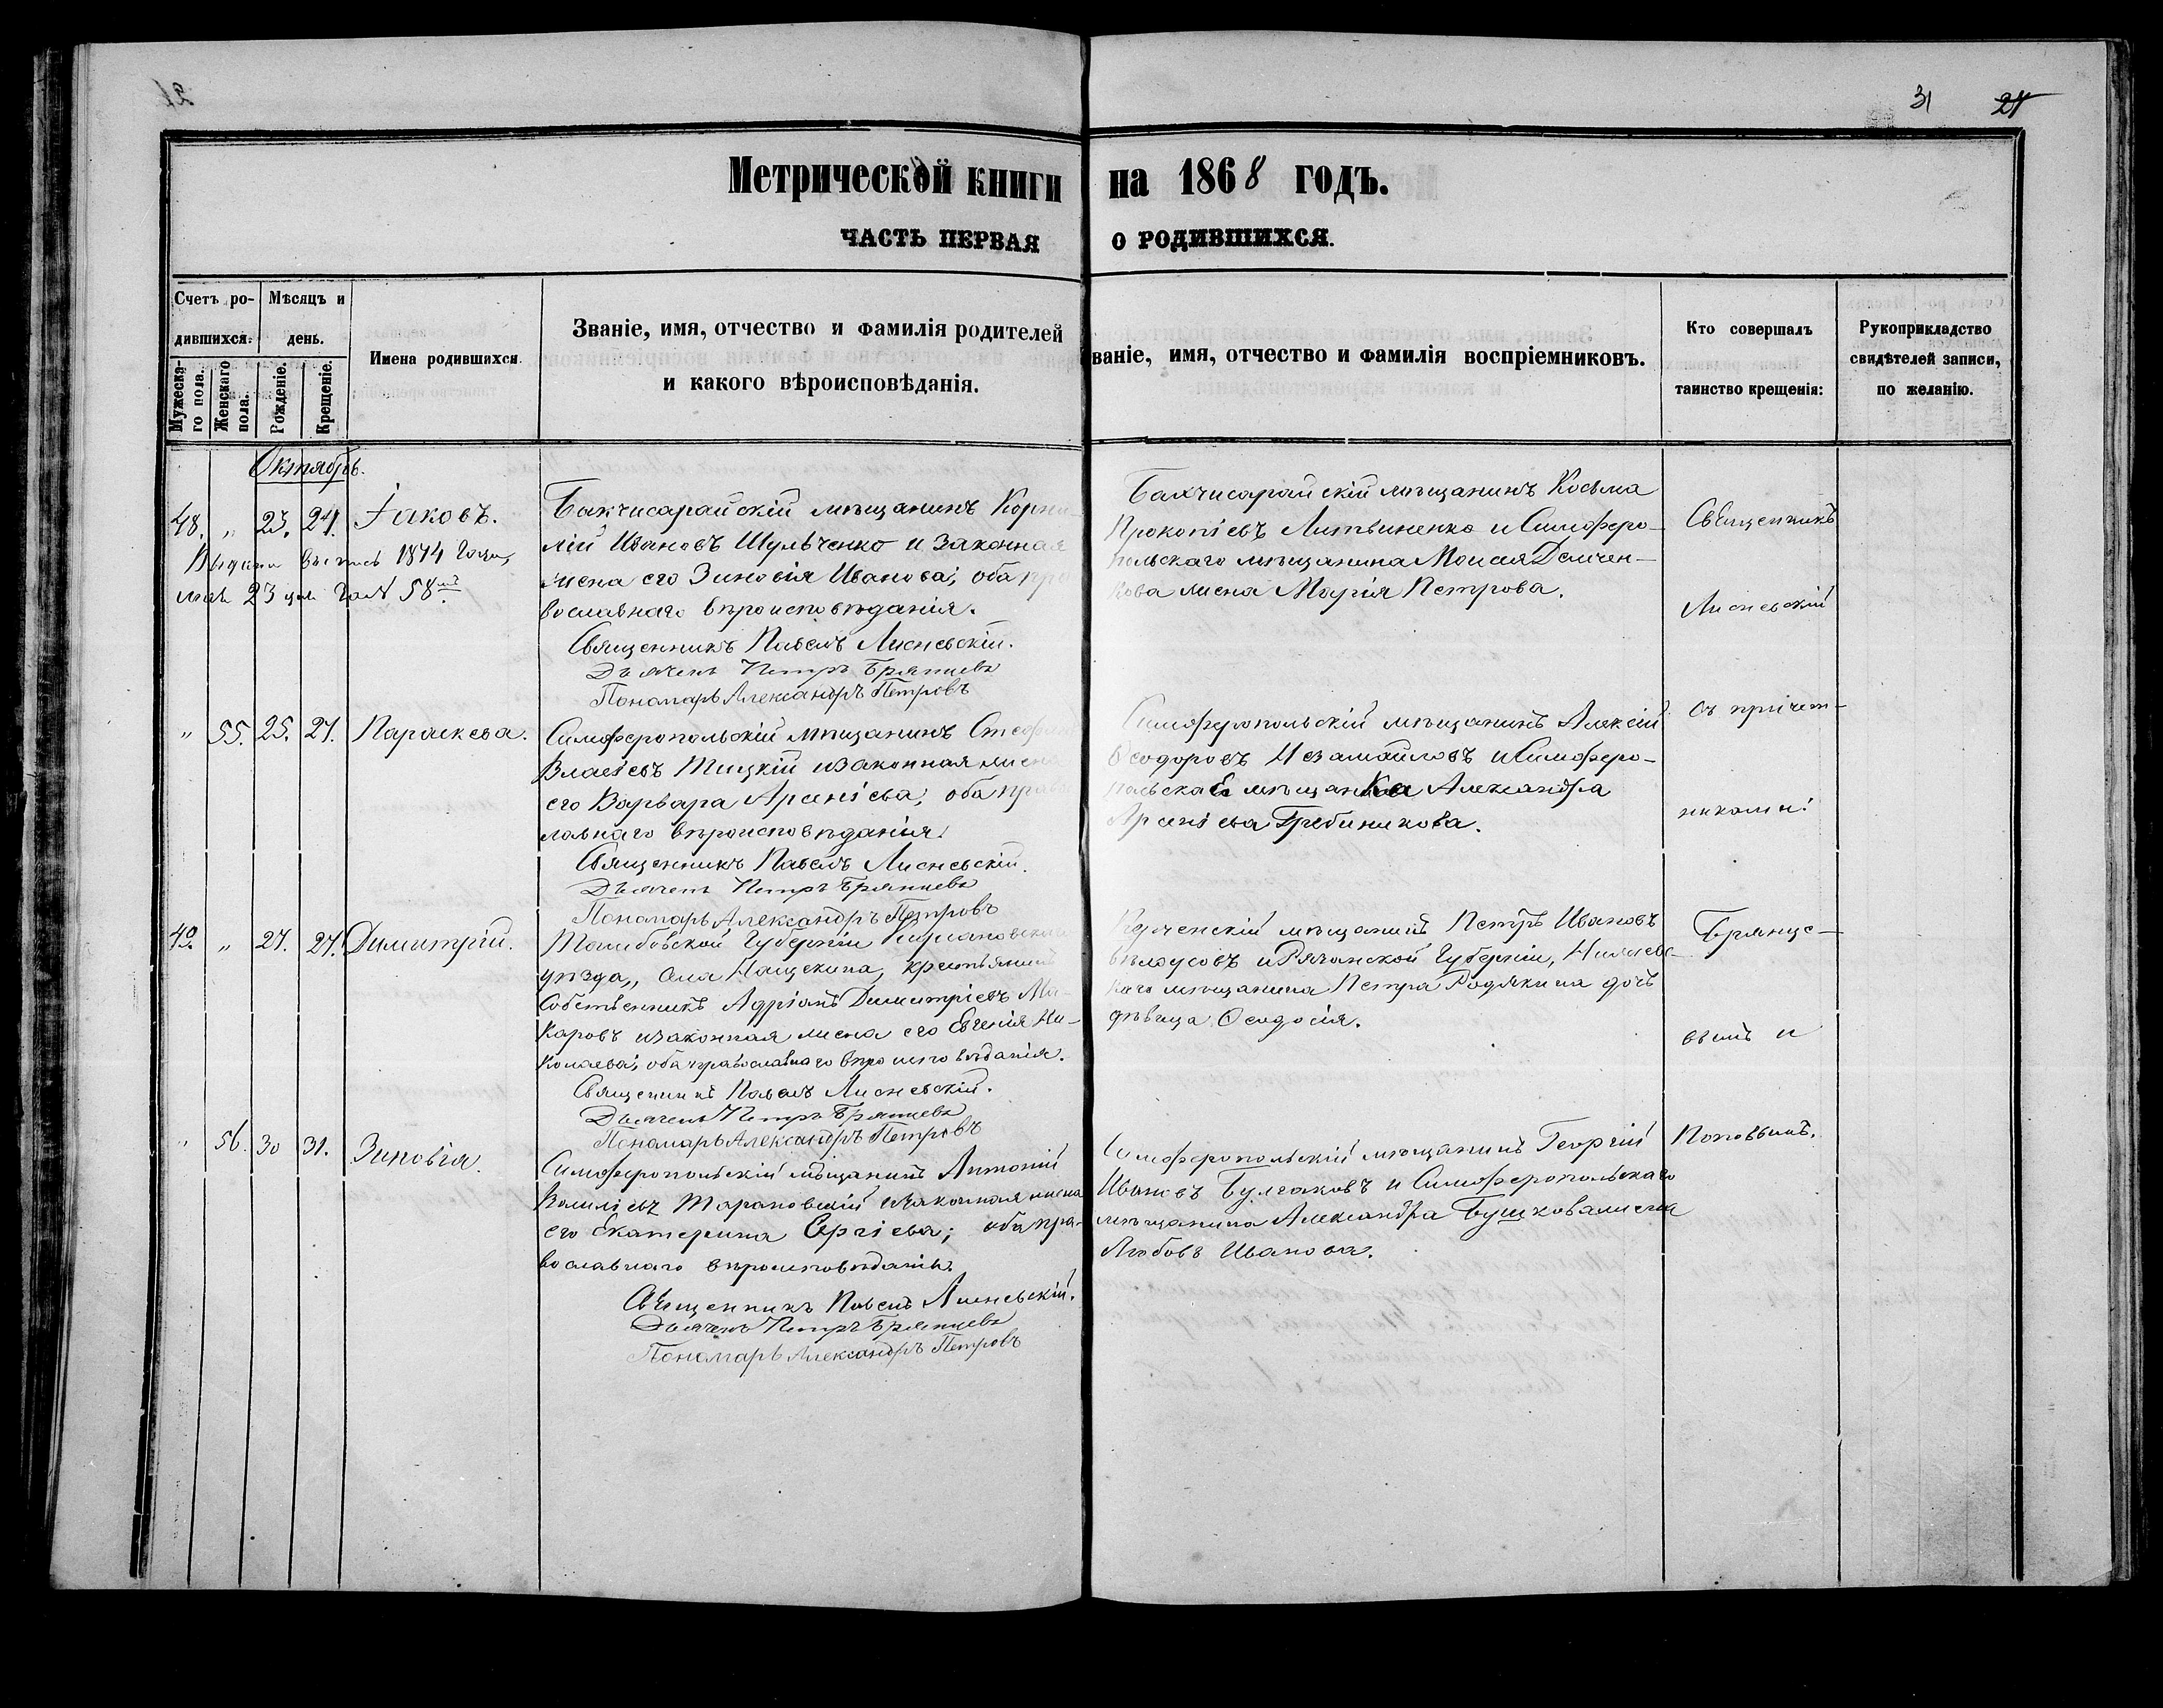 31 21
Метрической книги на 1868 годъ.
ЧАСТЬ ПЕРВАЯ О РОДИВШИХСЯ.
Счетъ ро-
дившихся.
Мужеска-
го пола.
Женскаго
пола.
Мѣсяцъ и
день.
Рожденіе.
Крещеніе.
Имена родившихся.
Званіе, имя, отчество и фамилія родителей
и какого вѣроисповѣданія.
Званіе, имя, отчество и фамилія воспріемниковъ.
Кто совершалъ
таинство крещенія:
Рукоприкладство
свидѣтелей записи,
по желанію.
Октябрь.
48. " 23. 24. Іаковъ.
1874 года,
мая 23 дня 58
Бахчисарайскій мѣщанинъ Корни-
лій Ивановъ Шульченко и законная
жена его Зиновія Иванова; оба пра-
вославнаго вѣроисповѣданія.
Священникъ Павелъ Лисневскій.
Дьячекъ Петръ Брянцевъ
Пономарь Александръ Петровъ
Бахчисарайскій мѣщанинъ Косьма
Прокопіевъ Литвиненко и Симферо-
польскаго мѣщанина Моисея Демчен-
кова жена Марія Петрова.
" 55. 25. 27. Параскева.
Симферопольскій мѣщанинъ Стефанъ
Власіевъ Тицкій и законная жена
его Варвара Арсеніева; оба правос-
лавнаго вѣроисповѣданія.
Священникъ Павелъ Лисневскій.
Дьячекъ Петръ Брянцевъ
Пономарь Александръ Петровъ
Симферопольскій мѣщанинъ Алексій
Ѳеодоровъ Незамайловъ и Симферо-
польская мѣщанка Александра
Арсеніева Гребиникова.
49. " 27. 27. Димитрій.
Тамбовской Губерніи Кирсановскаго
уѣзда, села Нащекина, крестьянинъ
Собственникъ Адріанъ Димитріевъ Ма-
каровъ и законная жена его Евгенія Ни-
колаева; оба православнаго вѣроисповѣданія.
Священникъ Павелъ Лисневскій.
Дьячекъ Петръ Брянцевъ
Пономарь Александръ Петровъ
Керченскій мѣщанинъ Петръ Ивановъ
Бѣлоусовъ и Рязанской Губерніи,
мѣщанина Петра Родякина дочь
дѣвица Ѳеодосія.
" 56. 30 31. Зиновія.
Симферопольскій мѣщанинъ Антоній
Василіевъ Тарановскій и законная жена
его Екатерина Сергіева; оба пра-
вославнаго вѣроисповѣданія.
Священникъ Павелъ Лисневскій.
Дьячекъ Петръ Брянцевъ
Пономарь Александръ Петровъ
Симферопольскій мѣщанинъ Георгій
Ивановъ Булгаковъ и Симферопольскаго
мѣщанина Александра Бушкова жена
Любовь Иванова.
Священникъ
Лисневскій
съ причет-
никами:
Брянце-
вымъ и
Поповымъ.